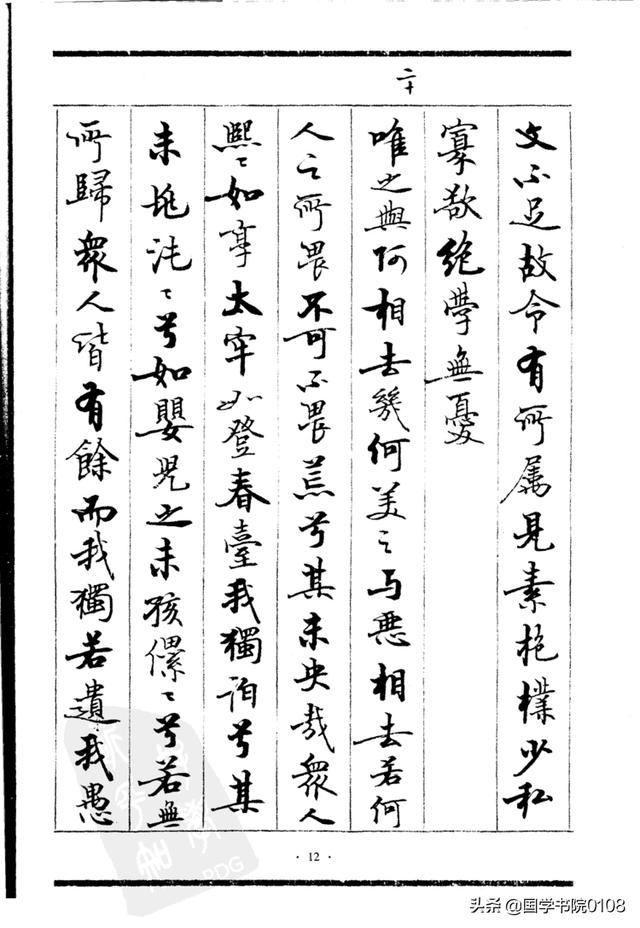 文不足故令有所属見素抱樸少私
寡欲絶學無憂
二十
唯之與阿相去幾何美之与惡相去若何
人之所畏不可不畏荒兮其未央哉衆人
熙〻如享太牢如登春臺我獨泊兮其
未兆沌〻兮如嬰兒之未孩儽〻兮若無
所歸衆人皆有餘而我獨若遺我愚
· 12 ·
PDG
头条 @国学书院0108